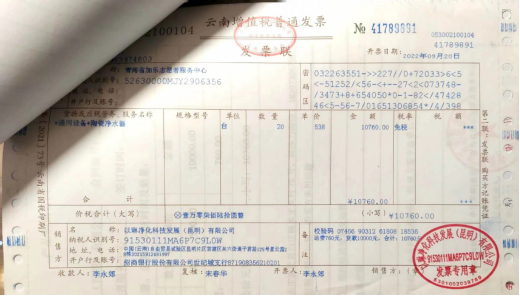 2100104
云南增值税普通发票
№ 41789891
053002100104
41789891
发票联
开票日期: 2022年09月20日
青海省加乐志愿者服务中心
52630000MJY2906356
地址、电话:
开户行及账号:
密码区
032263551->>227//0+72033>6<5
<-51252/<56-<+--27<2<073748
/3473+8+654050*0-1-82/<47428
46<5-56-7/01651306854*/4/398
货物或应税劳务、服务名称 规格型号 单位 数量 单价 金额 税率 税额
台 20 538 10760.00 免税 ***
合计 ¥10760.00 ***
价税合计(大写) ⊗壹万零柒佰陆拾圆整 (小写) ¥10760.00
销售方
名称: 以琳净化科技发展(昆明)有限公司
纳税人识别号: 91530111MA6P7C9L0W
地址、电话:
开户行及账号: 招商银行股份有限公司世纪城支行871908356210201
备注
校验码 07406 90312 61808 18536
收款人: 李永郊 复核: 宋春华 开票人: 李永郊 销售方:(章)
第二联:发票联 购买方记账凭证
以琳净化科技发展(昆明)有限公司
91530111MA6P7C9L0W
发票专用章